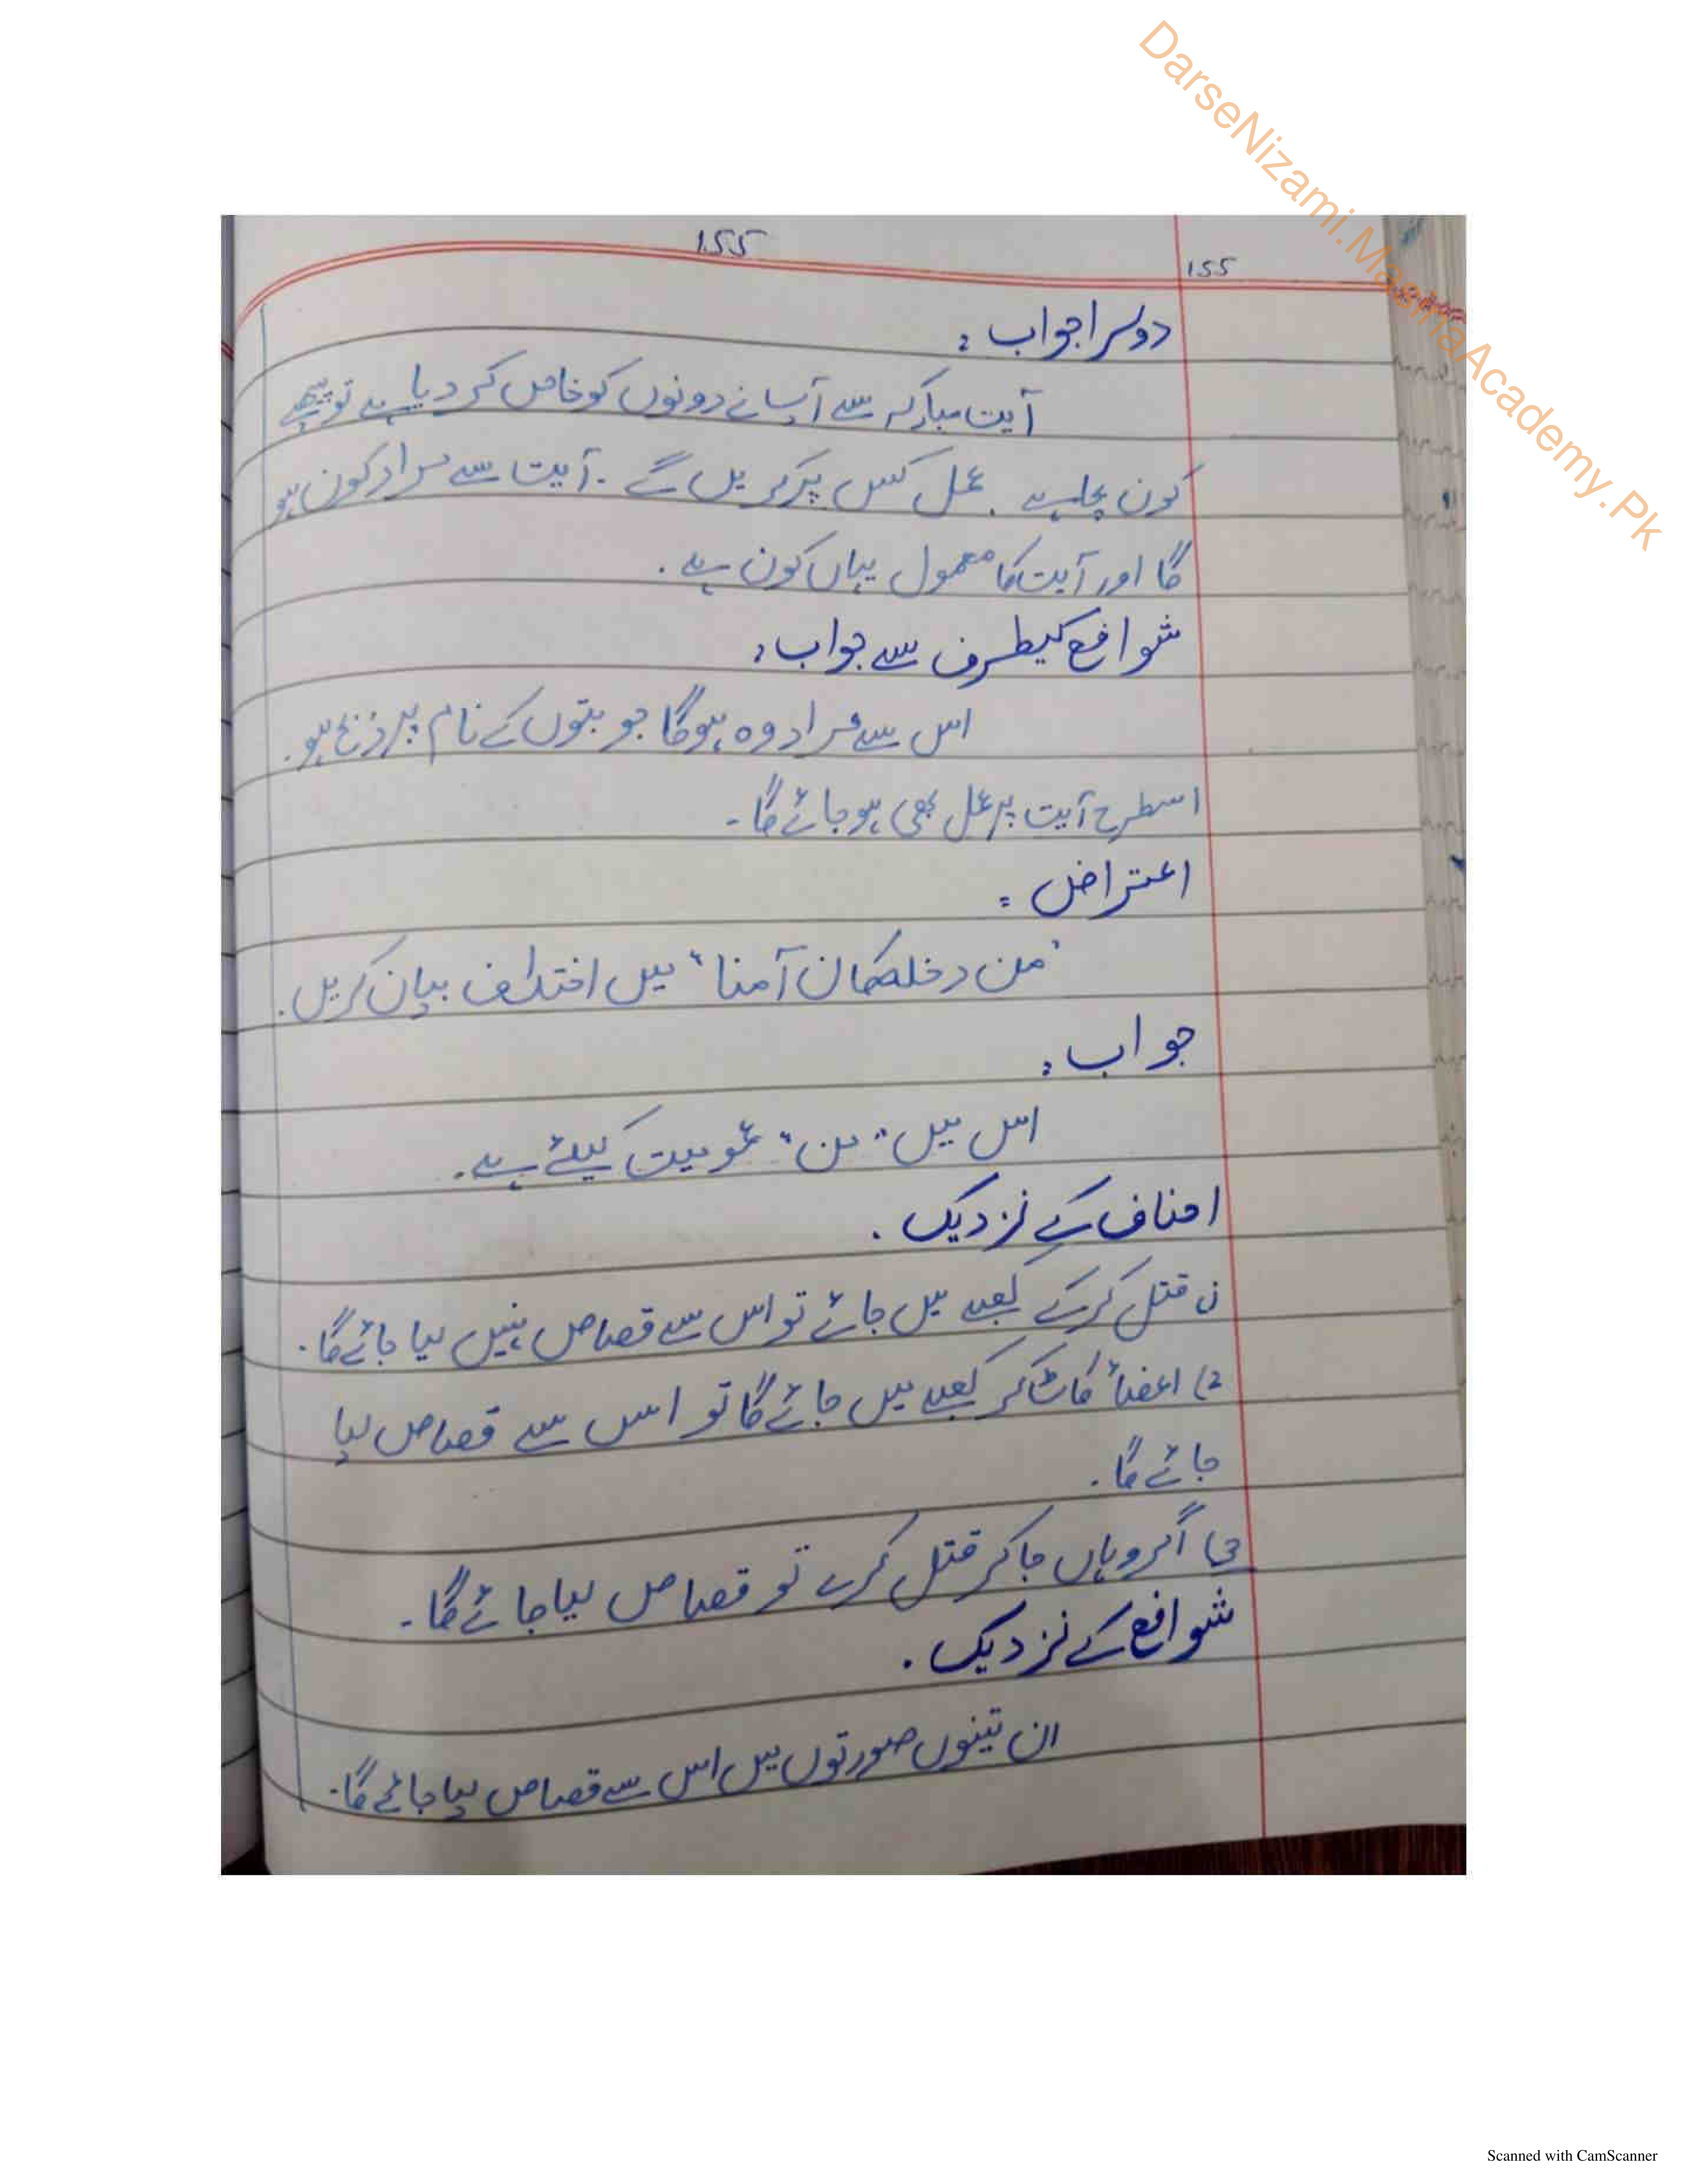 DarseNizami.MadinaAcademy.Pk
155
155
دوسرا جواب :
آیت مبارکہ سے آپ نے دونوں کو خاص کر دیا ہے تو پیچھے
کون بچا ہے . عمل کس پر کریں گے . آیت سے مراد کون ہو
گا اور آیت کا معمول یہاں کون ہے .
شوافع کیطرف سے جواب :
اس سے مراد وہ ہوگا جو بتوں کے نام پر ذبح ہو .
اسطرح آیت پر عمل بھی ہو جائے گا -
اعتراض :
"من دخلہ کان آمنا" میں اختلاف بیان کریں .
جواب :
اس میں "من" عمومیت کیلئے ہے .
احناف کے نزدیک .
1) قتل کرکے کعبہ میں جائے تو اس سے قصاص نہیں لیا جائے گا .
2) اعضاء کاٹ کر کعبہ میں جائے گا تو اس سے قصاص لیا
جائے گا .
3) اگر وہاں جا کر قتل کرے تو قصاص لیا جائے گا -
شوافع کے نزدیک .
ان تینوں صورتوں میں اس سے قصاص لیا جائے گا -
Scanned with CamScanner